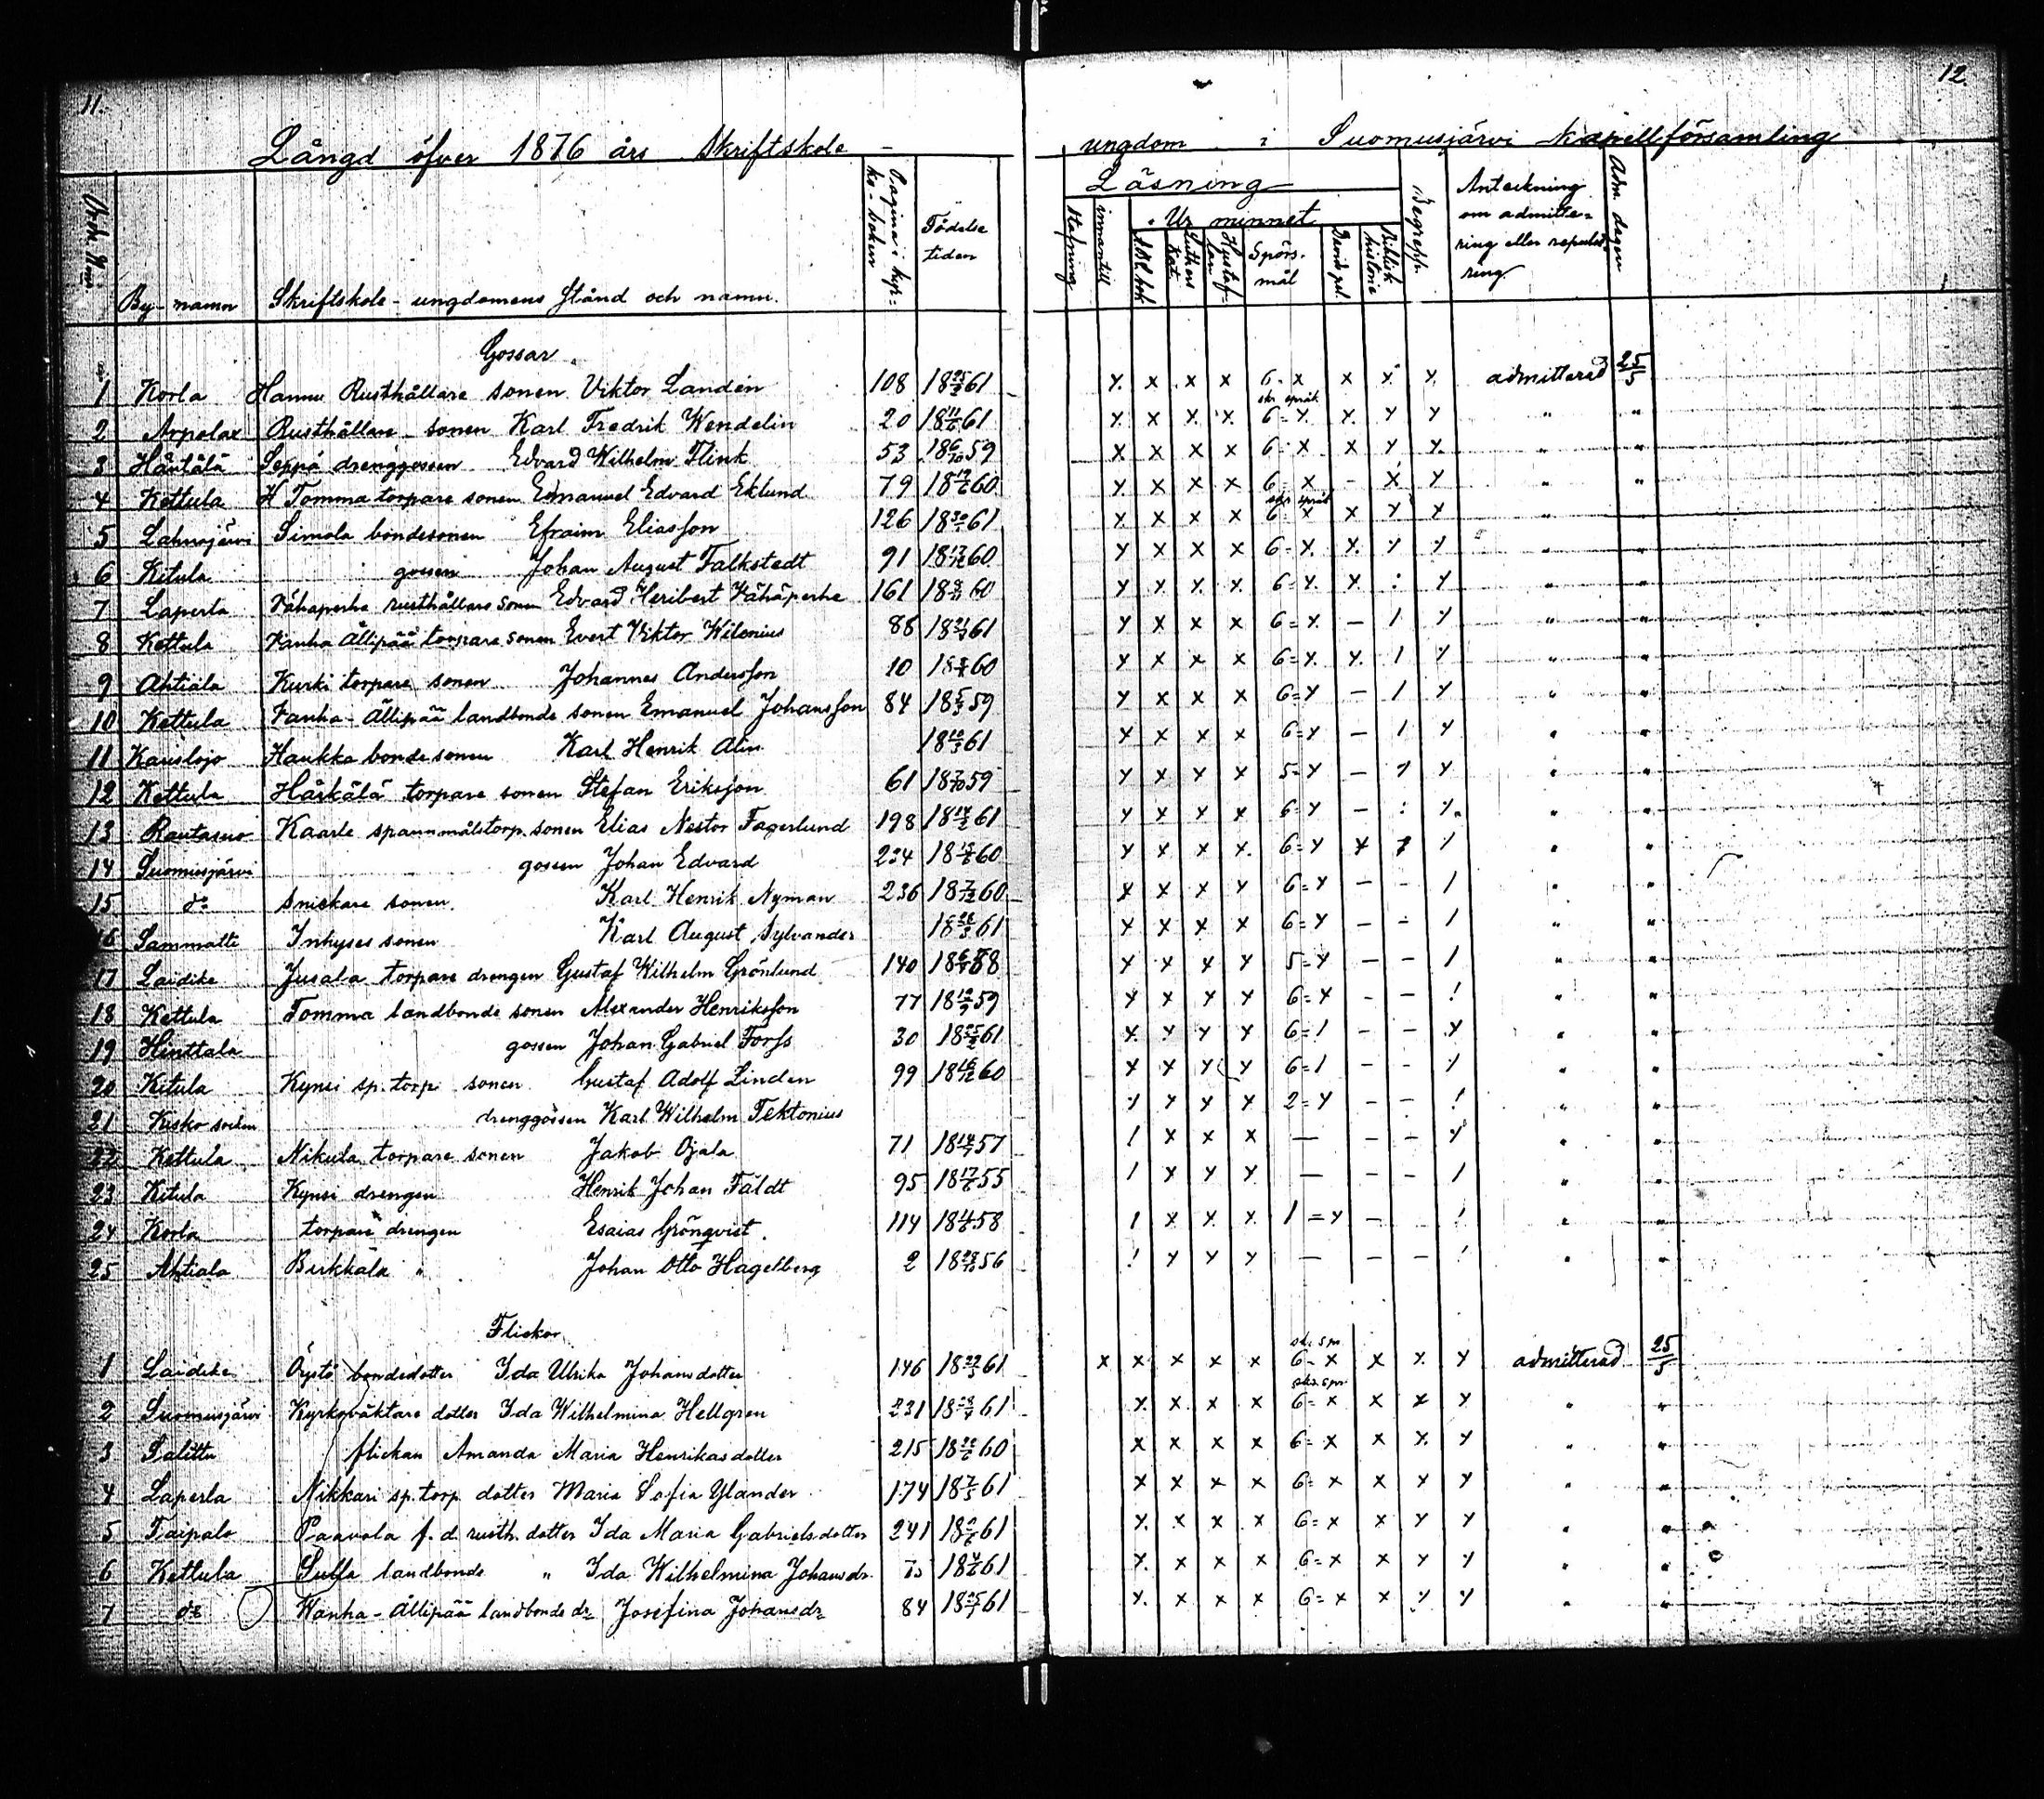 11.
12
Längd öfver 1876 års Skriftskole-
ungdom i Suomusjärvi Kapellförsamling
By-namn Skriftskole-ungdomens stånd och namn. Pagina i kyrko-boken Födelse tiden
Läsning
Ur minnet
Stafning innantill ABC bok Luthers Kat. Hustaflan Spörsmål Biblisk historie Begrepp. Anteckning om admittering eller repulsering Adm. dagen
Gossar
1 Korla Hannu Rusthållare sonen Viktor Landén 108 61 x x x x 6-x x x x admitterad 25/5
2 Arpalax Rusthållare sonen Karl Fredrik Wendelin 20 18 11/6 61 x x x x 6=x x x x " "
3 Häntälä Seppä drenggossen Edvard Wilhelm Flink 53 18 6/10 59 x x x x 6=x x x x " "
4 Kettula H Tomma torpare sonen Emanuel Edvard Eklund 79 60 x x x x 6=x - x x " "
5 Lahnajärvi Simola bondesonen Efraim Eliasson 126 61 x x x x 6=x x x x " "
6 Kitula gossen Johan August Falkstedt 91 60 x x x x 6=x x x x " "
7 Laperla Vähäperhe rusthållare sonen Edvard Heribert Vähäperhe 161 60 x x x x 6=x x : x " "
8 Kettula Vanha Ällipää torpare sonen Evert Viktor Wilenius 88 61 x x x x 6=x - 1 x " "
9 Ahtiala Kurki torpare sonen Johannes Andersson 10 60 x x x x 6=x x 1 x " "
10 Kettula Vanha-Ällipää landbonde sonen Emanuel Johansson 84 59 x x x x 6=x - 1 x " "
11 Karislojo Haukka bonde sonen Karl Henrik Alin 61 x x x x 6=x - 1 x " "
12 Kettula Härkälä torpare sonen Stefan Eriksson 61 18 7/10 59 x x x x 5=x - x x " "
13 Rautasuo Kaarle spannmålstorp. sonen Elias Nestor Fagerlund 198 61 x x x x 6=x - : x " "
14 Suomusjärvi gossen Johan Edvard 234 60 x x x x 6=x x x " "
15 do Snickare sonen Karl Henrik Nyman 236 60 x x x x 6=x - - 1 " "
16 Sammatti Inhyses sonen Karl August Sylvander 61 x x x x 6=x - - 1 " "
17 Laidike Jusala torpare drengen Gustaf Wilhelm Grönlund 140 58 x x x x 5=x - - 1 " "
18 Kettula Tomma landbonde sonen Alexander Henriksson 77 59 x x x x 6=x - - ! " "
19 Hinttala gossen Johan Gabriel Forss 30 61 x x x x 6=1 - - x " "
20 Kitula Kynsi sp. torp. sonen Gustaf Adolf Linden 99 60 x x x x 6=1 - - x " "
21 Kisko socken drenggossen Karl Wilhelm Tektonius x x x x 2=x - - ! " "
22 Kettula Nikula torpare sonen Jakob Ojala 71 57 1 x x x — - - x " "
23 Kitula Kynsi drengen Henrik Johan Fäldt 95 55 1 x x x — - - 1 " "
24 Korla torpare drengen Esaias Grönqvist. 114 58 1 x x x 1=x - ! " "
25 Ahtiala Birkkälä " Johan Otto Hagelberg 2 56 ! x x x — - - ! " "
Flickor
1 Laidike bondedotter Ida Ulrika Johansdotter 146 61 x x x x x 6-x x x x admitterad 25/5
2 Suomusjärvi Kyrkoväktare dotter Ida Wilhelmina Hellgren 231 61 x x x x 6=x x x x " "
3 Salittu flickan Amanda Maria Henriksdotter 215 60 x x x x 6=x x x x " "
4 Laperla Nikkari sp. torp. dotter Maria Sofia Ylander 174 61 x x x x 6=x x x x " "
5 Taipale Paavola f. d. rusth. dotter Ida Maria Gabrielsdotter 241 61 x x x x 6=x x x x " "
6 Kettula landbonde " Ida Wilhelmina Johansdr. 61 x x x x 6=x x x x " "
7 do Wanha-Ällipää landbonde dr Josefina Johansdr 84 61 x x x x 6=x x x x " "